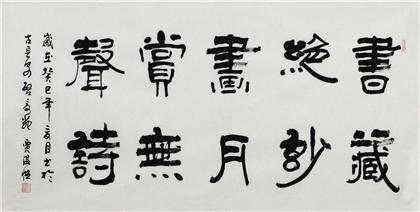 書藏
絕妙
畫月
賞無
聲詩
歲在癸巳年夏月書於